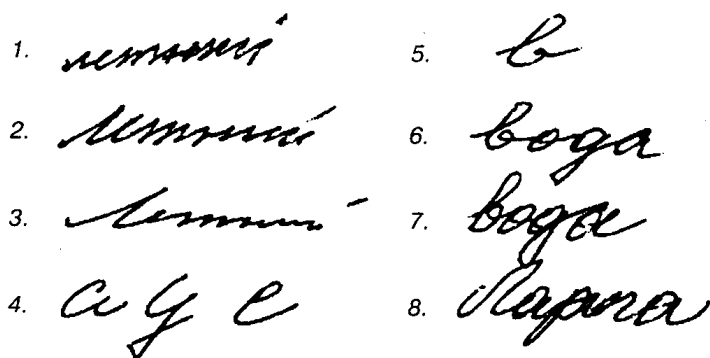 1. летний
2. Летний
3. Летний
4. а у е
5. в
6. вода
7. вода
8. Парта